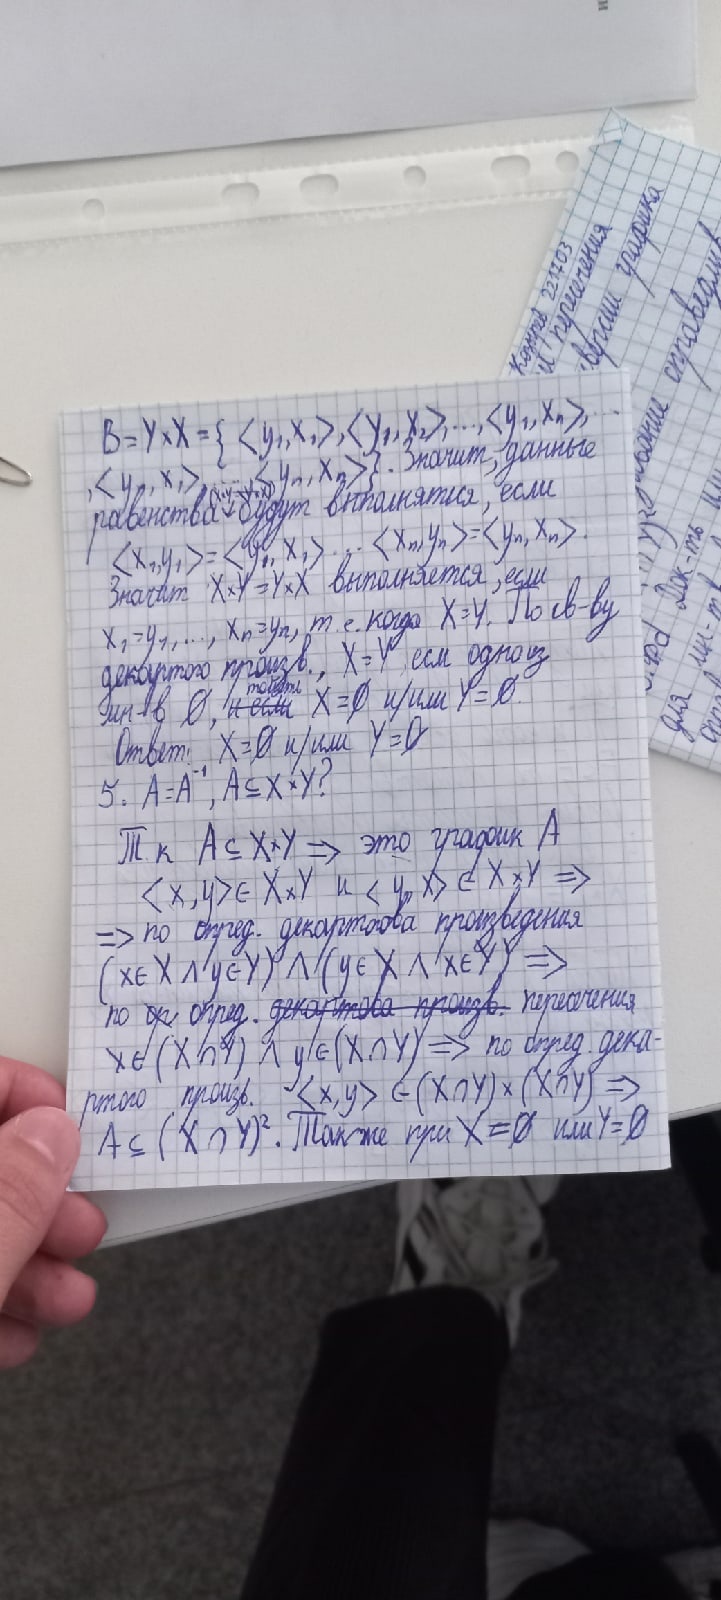 B = Y×X = { <y₁,x₁>, <y₁,x₂>,..., <y₁,xₙ>,...
, <yₙ,x₁>, ... <yₙ,xₙ>}. Значит, данные
(X×Y=Y×X)
равенства будут выполнятся, если
<x₁,y₁>=<y₁,x₁> ... <xₙ,yₙ>=<yₙ,xₙ>.
Значит X×Y=Y×X выполняется, если
x₁=y₁,..., xₙ=yₙ, т.е. когда X=Y. По св-ву
декартого произв., X=Y если одно из
мн-в ∅, и если X=∅ и/или Y=∅.
Ответ: X=∅ и/или Y=∅
5. A=A⁻¹, A⊆X×Y?
Т.к A⊆X×Y => это график A
<x,y>∈X×Y и <y,x>∈X×Y =>
=> по опред. декартова произведения
(x∈X∧y∈Y)∧(y∈X∧x∈Y) =>
по ор опред. декартова произв. пересечения
x∈(X∩Y)∧y∈(X∩Y) => по опред. дека-
ртого произв. <x,y>∈(X∩Y)×(X∩Y) =>
A⊆(X∩Y)². Также при X=∅ или Y=∅
221703
пересечения
графика
справедлив
Док-ть
для мн-тв